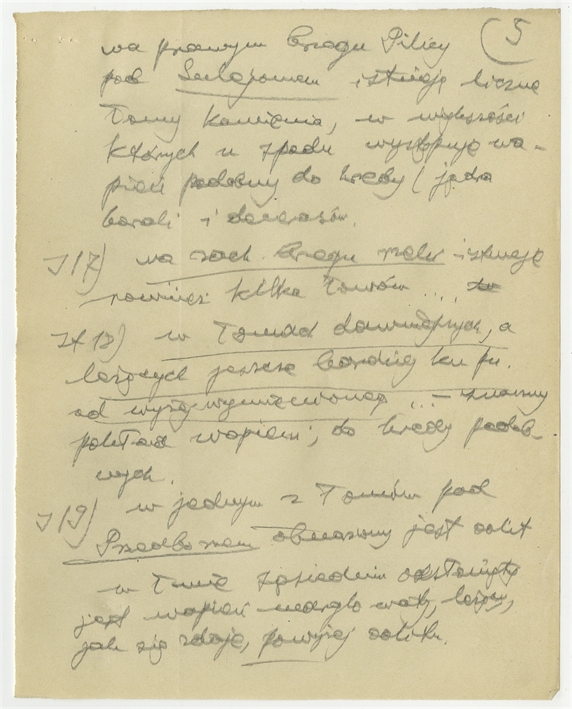 5
na prawym brzegu Pilicy
pod Sulejowem istnieją liczne
łomy kamienia, w większości
których u spodu występuje wa-
pień podobny do kredy (jądra
korali i
J 17) na zach. brzegu rzeki istnieje
również kilka łomów ...
18) w łomach dawniejszych, a
leżących jeszcze bardziej ku
od wyżej wymienionego ... – znamy
pokład wapieni, do kredy podob-
nych.
J 19) w jednym z łomów pod
Przedborzem obnażony jest oolit
w łomie sąsiednim odsłonięty
jest wapień marglowaty, leżący,
jak się zdaje, powyżej oolitu.